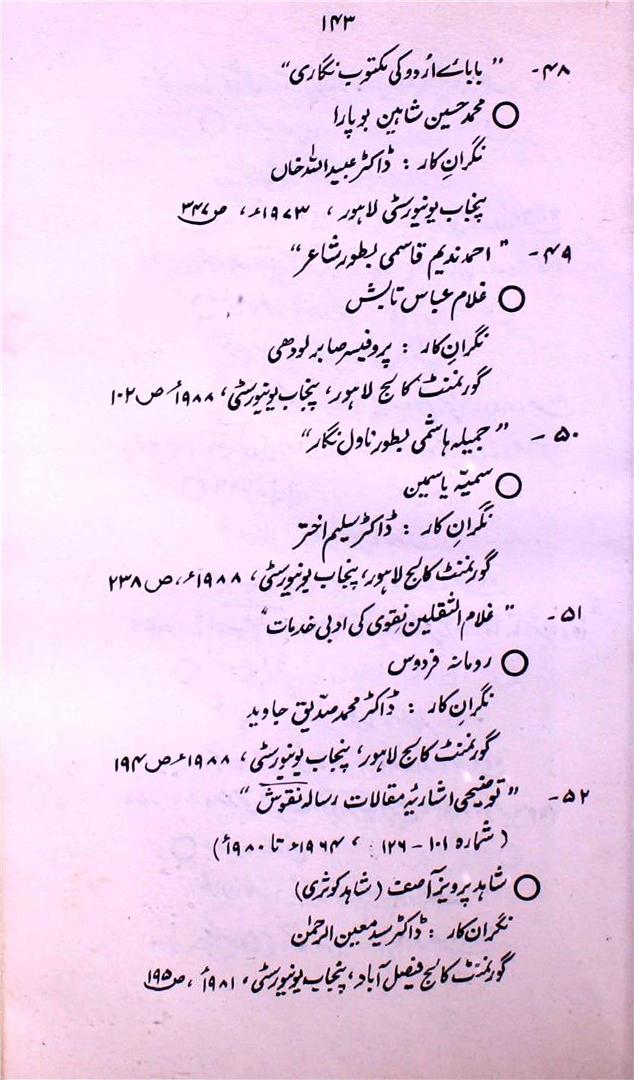 ۱۴۳
۴۸- "بابائے اردو کی مکتوب نگاری"
○ محمد حسین شاہین بوپارا
نگرانِ کار : ڈاکٹر عبیداللہ خاں
پنجاب یونیورسٹی لاہور ، ۱۹۷۳ء، ص ۳۴۷
۴۹- "احمد ندیم قاسمی بطور شاعر"
○ غلام عباس تابش
نگرانِ کار : پروفیسر صابر لودھی
گورنمنٹ کالج لاہور، پنجاب یونیورسٹی، ۱۹۸۸ء ص ۱۰۲
۵۰- "جمیلہ ہاشمی بطور ناول نگار"
○ سمیّہ یاسمین
نگرانِ کار : ڈاکٹر سلیم اختر
گورنمنٹ کالج لاہور، پنجاب یونیورسٹی، ۱۹۸۸ء، ص ۲۳۸
۵۱- "غلام الثقلین نقوی کی ادبی خدمات"
○ رومانہ فردوس
نگرانِ کار : ڈاکٹر محمد صدّیق جاوید
گورنمنٹ کالج لاہور، پنجاب یونیورسٹی، ۱۹۸۸ء ص ۱۹۴
۵۲- "توضیحی اشاریۂ مقالات رسالہ نقوش"
(شمارہ ۱۰۱ - ۱۲۶ ، ۱۹۶۴ء تا ۱۹۸۰ء)
○ شاہد پرویز آصف (شاہد کوثری)
نگرانِ کار : ڈاکٹر سید معین الرحمٰن
گورنمنٹ کالج فیصل آباد، پنجاب یونیورسٹی، ۱۹۸۱ء، ص ۱۹۵